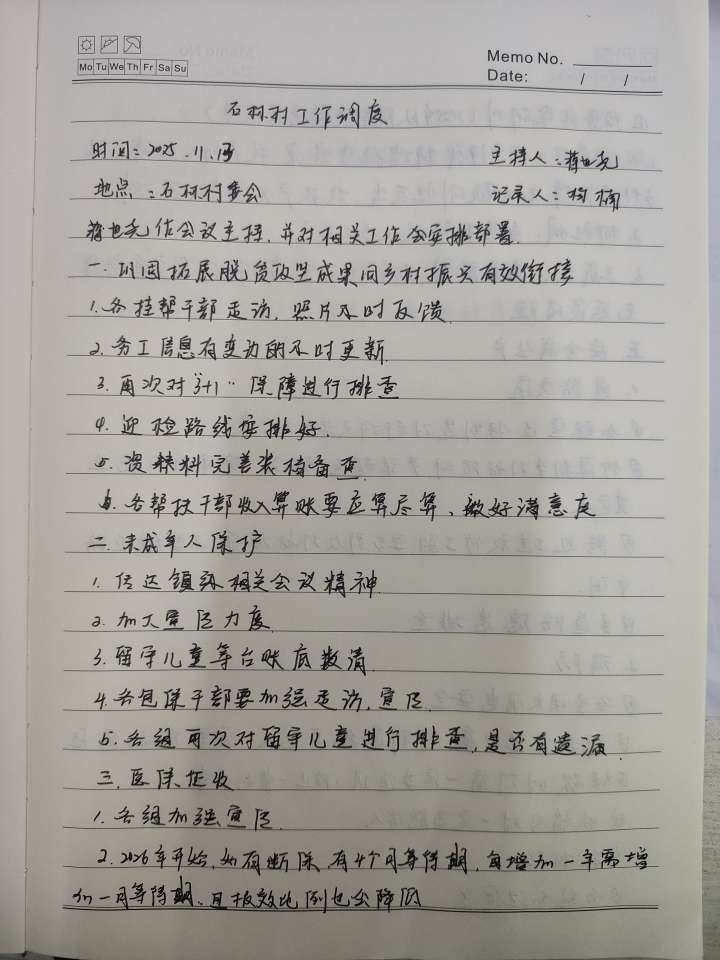 Mo Tu We Th Fr Sa Su
Memo No.
Date: / /
石林村工作调度
时间：2025.11.13
主持人：蒋世尧
地点：石林村村委会
记录人：杨楠
蒋世尧作会议主持，并对相关工作会安排部署.
一.巩固拓展脱贫攻坚成果同乡村振兴有效衔接
1.各挂帮干部走访，照片不时反馈.
2.务工信息有变动的不时更新
3.再次对"3+1"保障进行排查
4.迎检路线安排好.
5.资料完善装档备查.
6.各帮扶干部收入算账要应算尽算、做好满意度
二.未成年人保护
1.传达镇级相关会议精神
2.加大宣传力度
3.留守儿童等台账底数清
4.各包保干部要加强走访、宣传
5.各组再次对留守儿童进行排查，是否有遗漏.
三.医保征收
1.各组加强宣传.
2.2026年开始，如有断保，有4个月等待期，每增加一年需增
加一月等待期、且报效比例也会降低